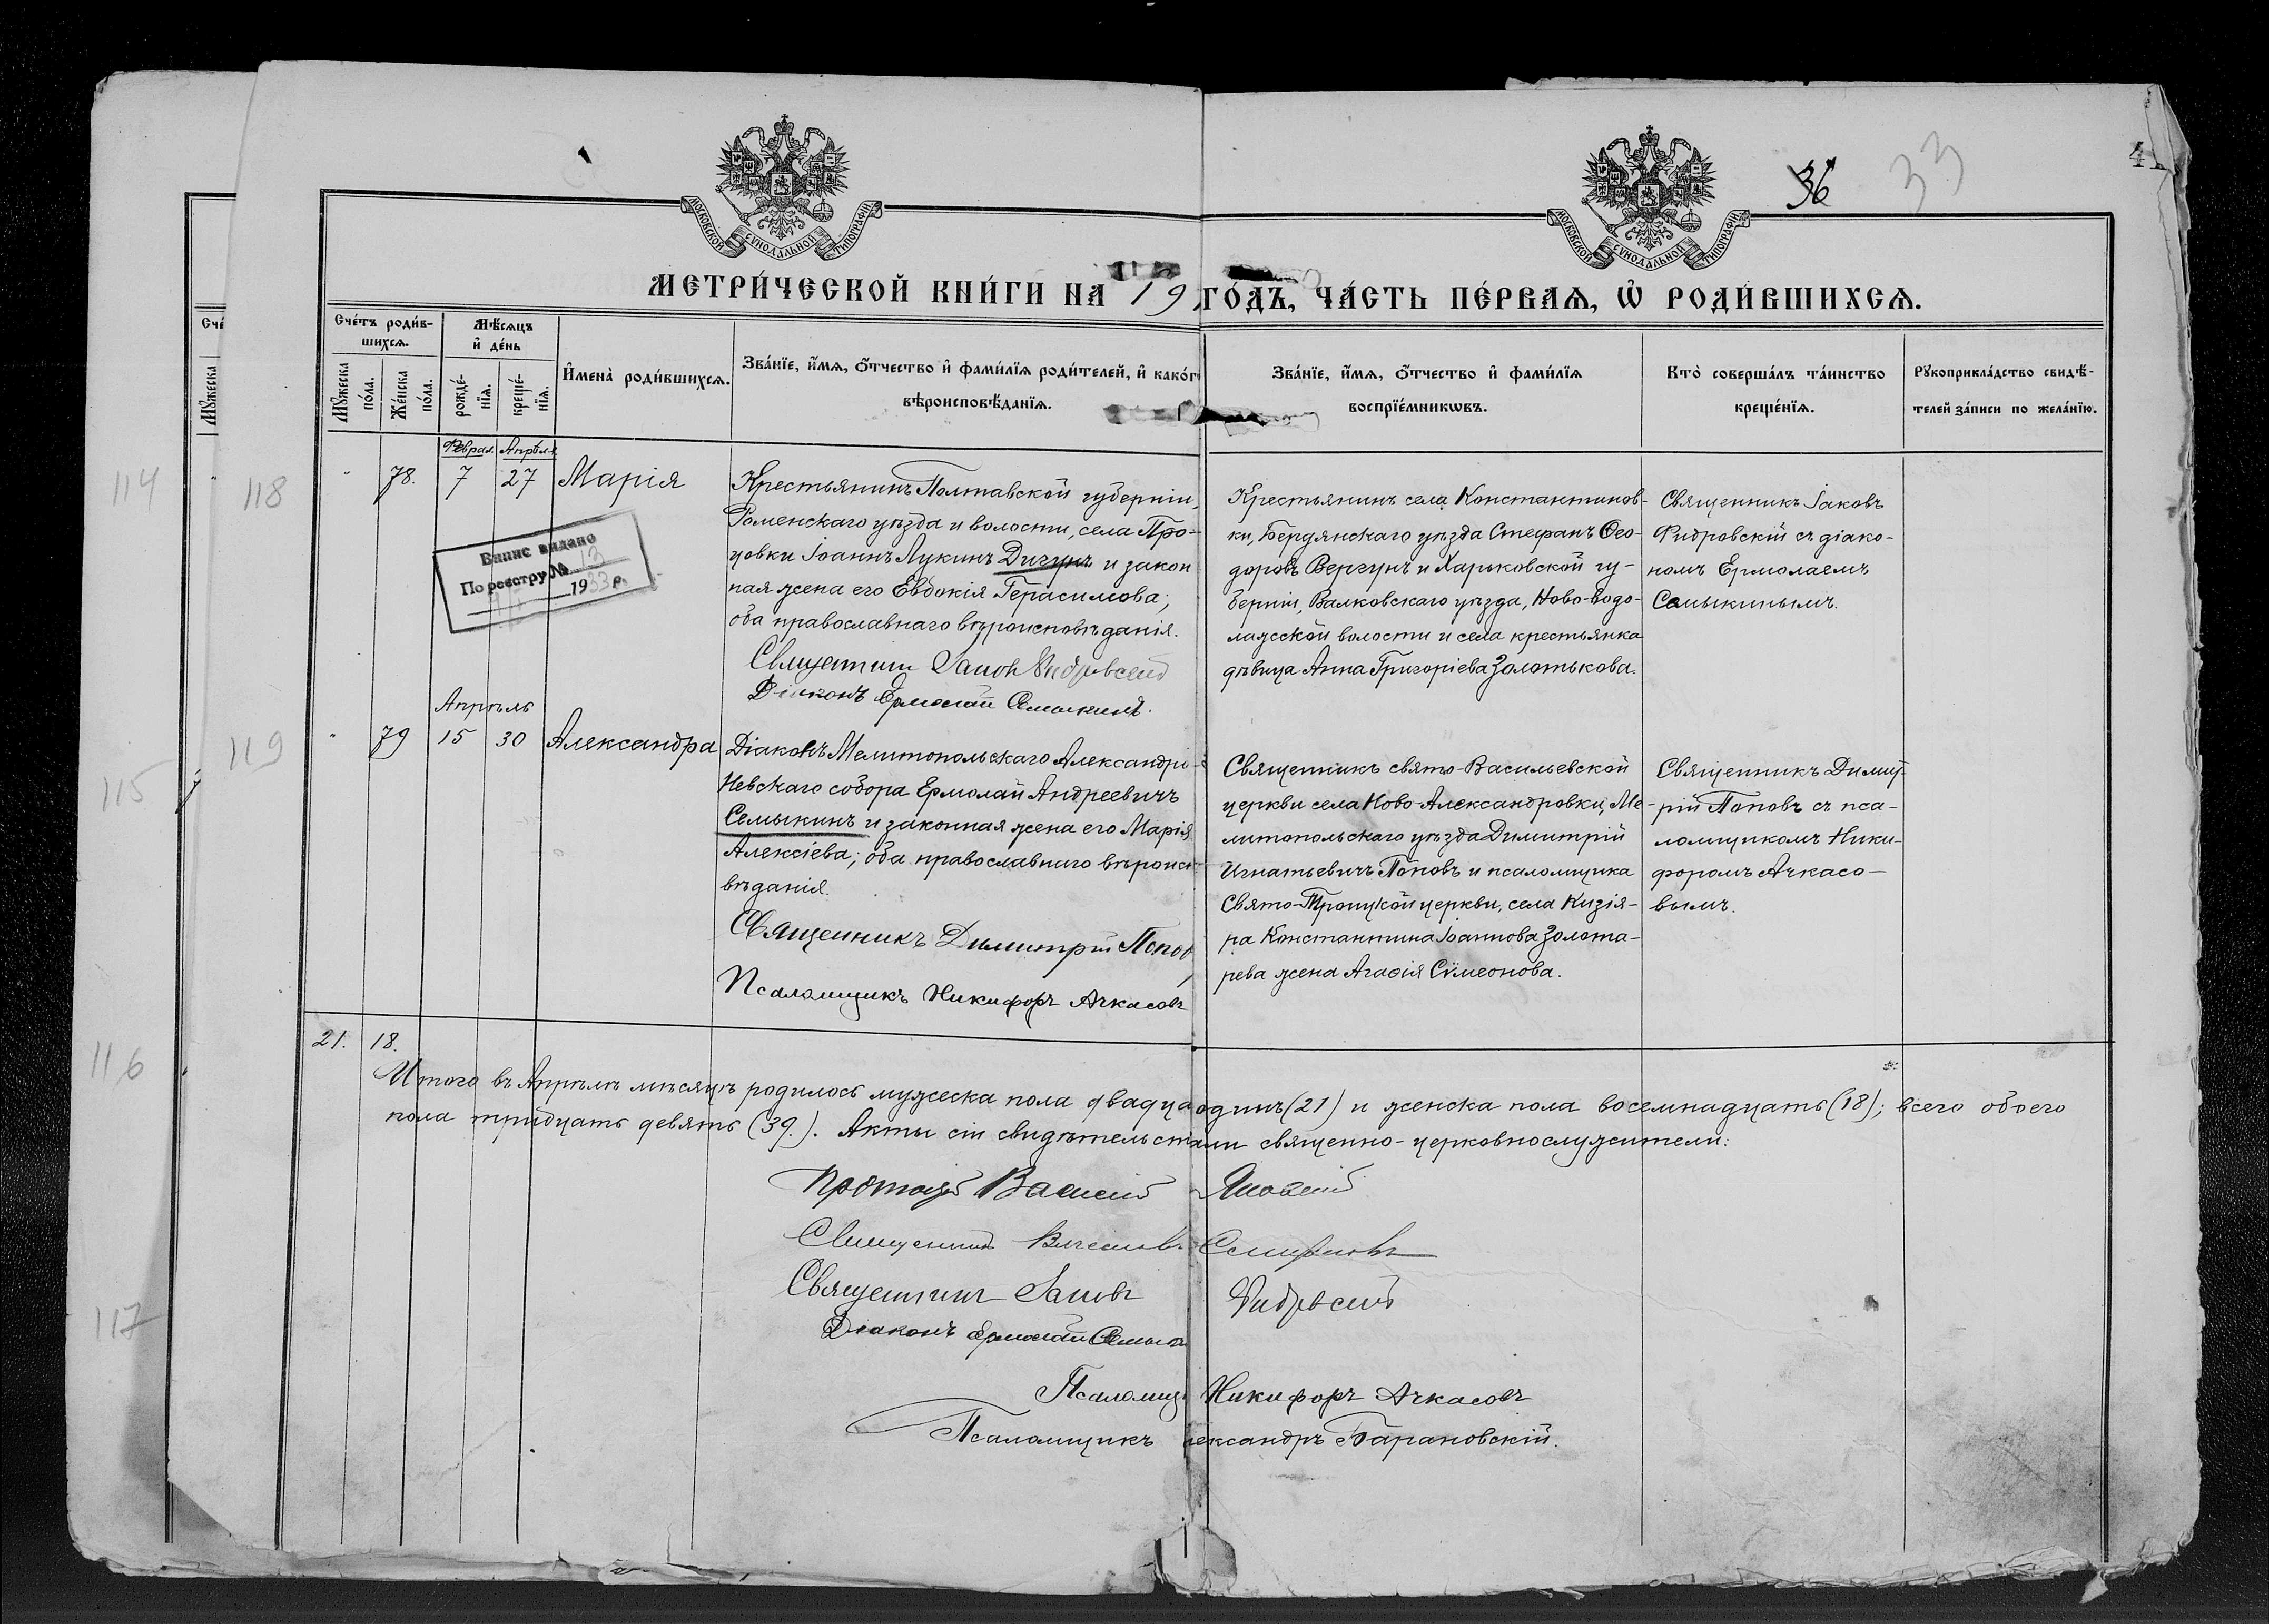 41
36
33
МОСКОВСКОЙ СѴНОДАЛЬНОЙ ТИПОГРАФІИ
МОСКОВСКОЙ СѴНОДАЛЬНОЙ ТИПОГРАФІИ
МЕТРИ́ЧЕСКОЙ КНИ́ГИ НА 19 ГО́ДЪ, ЧА́СТЬ ПЕ́РВАѦ, Ѡ҆ РОДИ́ВШИХСѦ.
Сче́тъ роди́в-
шихсѧ.
Мꙋжеска по́ла.
Же́нска по́ла.
Мѣ́сѧцъ
и҆ де́нь
рожде́-
нїѧ.
креще́-
нїѧ.
И҆мена̀ роди́вшихсѧ.
Зва́нїе, и҆́мѧ, ѻ҆́тчество и҆ фами́лїѧ роди́телей, и҆ како́г
вѣроисповѣ́данїѧ.
Зва́нїе, и҆́мѧ, ѻ҆́тчество и҆ фами́лїѧ
воспрїе́мникѡвъ.
Кто̀ соверша́лъ та́инство
креще́нїѧ.
Рꙋкоприкла́дство свидѣ́-
телей за́писи по жела́нїю.
Сче
Мꙋжеска
114
115
116
117
118
119
Феврал. Апрѣля
" 78. 7 27 Марія
Крестьянинъ Полтавской губерніи,
Роменскаго уѣзда и волости, села Про-
цовки Іоаннъ Лукинъ Дигунъ и закон
ная жена его Евдокія Герасимова;
оба православнаго вѣроисповѣданія.
Священникъ Іаковъ Фидровскій
Діаконъ Ермолай Семыкинъ.
Крестьянинъ села Константинов-
ки, Бердянскаго уѣзда Стефанъ Ѳео-
доровъ Вергунъ и Харьковской гу-
берніи, Валковскаго уѣзда, Ново-Водо-
лажской волости и села крестьянка
дѣвица Анна Григоріева Золотькова.
Священникъ Іаковъ
Фидровскій съ діако-
номъ Ермолаемъ
Семыкинымъ.
Випис видано
По реестру № 13
1933 р.
Апрѣль
" 79 15 30 Александра
Діаконъ Мелитопольскаго Александро-
Невскаго собора Ермолай Андреевичъ
Семыкинъ и законная жена его Марія
Алексіева; оба православнаго вѣроиспо
вѣданія.
Священникъ Димитрій Попов
Псаломщикъ Никифоръ Ачкасовъ
Священникъ свято-Васильевской
церкви села Ново-Александровки, Ме-
литопольскаго уѣзда Димитрій
Игнатьевичъ Поповъ и псаломщика
Свято-Троицкой церкви, села Кизія-
ра Константина Іоаннова Золота-
рева жена Агаѳія Сѵмеонова.
Священникъ Димит-
рій Поповъ съ пса-
ломщикомъ Ники-
форомъ Ачкасо-
вымъ.
21. 18.
Итого въ Апрѣлѣ мѣсяцѣ родилось мужеска пола двадца одинъ (21) и женска пола восемнадцать (18); всего обоего
пола тридцать девять (39.). Акты сіи свидѣтельст али священно-церковнослужители:
Протоіер Василій
Священникъ Вячеслав
Священникъ Іаковъ Фидровскій
Діаконъ Ермолай Семык
Псаломщ Никифоръ Ачкасовъ
Псаломщикъ лександръ Барановскій.